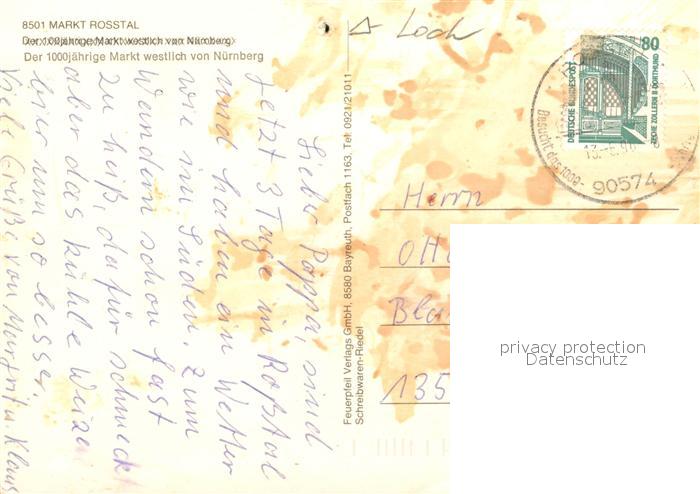 8501 MARKT ROSSTAL
Der 1000jährige Markt westlich von Nürnberg
Der 1000jährige Markt westlich von Nürnberg
Lieber Pappa, sind
jetzt 3 Tage in Roßtal
und haben ein Wetter
wie im Süden. Zum
Wandern schon fast
zu heiß, dafür schmeckt
aber das kühle Weizen
hier um so besser.
Viele Grüße von Margrit u. Klaus
Feuerpfeil Verlags GmbH, 8580 Bayreuth, Postfach 1163, Tel. 0921/21011
Schreibwaren-Riedel
Loch
80
DEUTSCHE BUNDESPOST
ZECHE ZOLLERN II · DORTMUND
Besucht das 1000-
90574
Herrn
Otto
135
privacy protection
Datenschutz